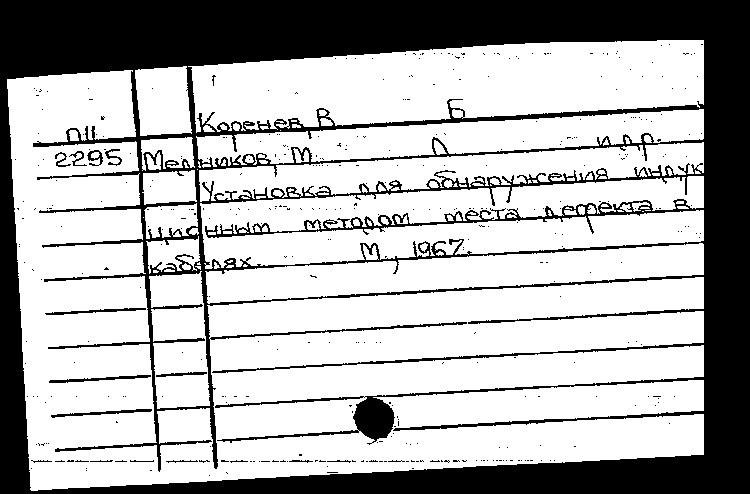 П11 Коренев, В Б
2295 Медников, М Л и др.
Установка для обнаружения индук
ционным методом места дефекта в
кабелях. М, 1967.